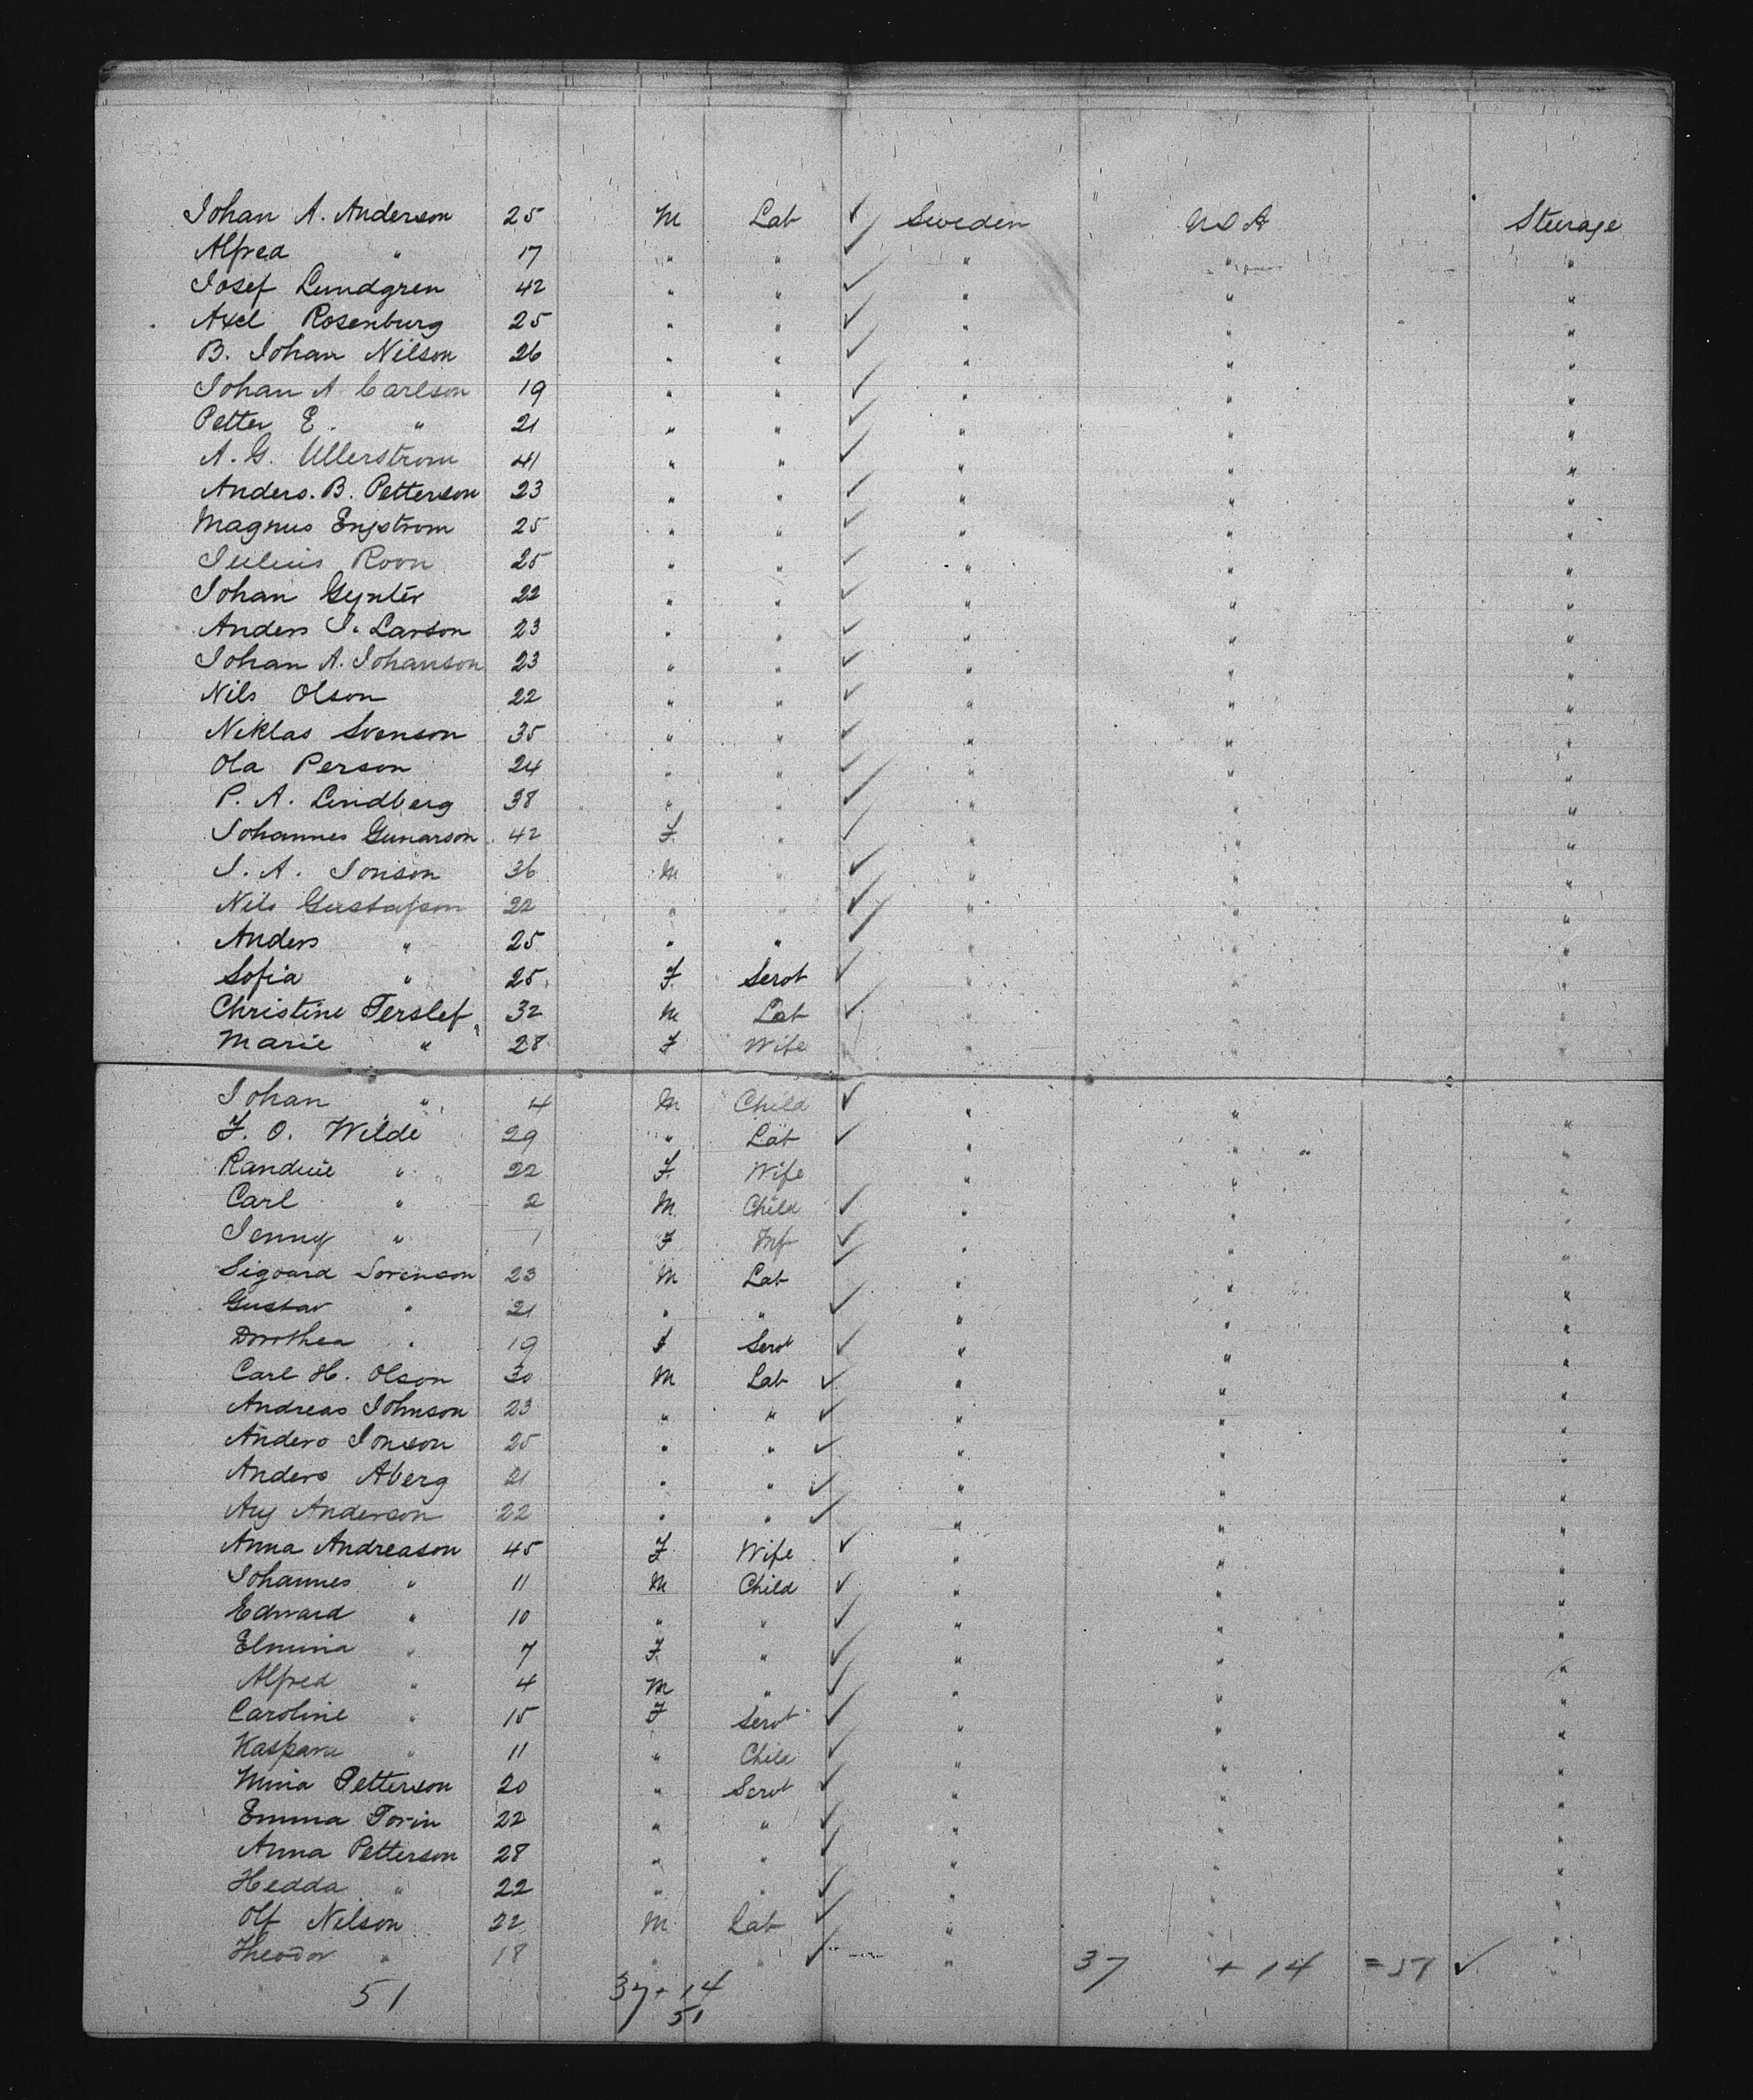 Johan A. Anderson 25 M Lab ✓ Sweden USA Steerage
Alfred " 17 " " ✓ " " "
Josef Lundgren 42 " " ✓ " " "
Axel Rosenburg 25 " " ✓ " " "
B. Johan Nilson 26 " " ✓ " " "
Johan A. Carlson 19 " " ✓ " " "
Petter E. " 21 " " ✓ " " "
A. G. Ullerstrom 41 " " ✓ " " "
Anders. B. Petterson 23 " " ✓ " " "
Magnus Engstrom 25 " " ✓ " " "
Julius Roon 25 " " ✓ " " "
Johan Gynter 22 " " ✓ " " "
Anders J. Larson 23 " " ✓ " " "
Johan A. Johanson 23 " " ✓ " " "
Nils Olson 22 " " ✓ " " "
Niklas Svenson 35 " " ✓ " " "
Ola Person 24 " " ✓ " " "
P. A. Lindberg 38 " " ✓ " " "
Johannes Gunarson 42 F. " ✓ " " "
J. A. Jonson 36 M " ✓ " " "
Nils Gustafson 22 " " ✓ " " "
Anders " 25 " " ✓ " " "
Sofia " 25 F. Servt ✓ " " "
Christine Terslef 32 M Lab ✓ " " "
Marie " 28 F Wife " " "
Johan " 4 M Child ✓ " " "
F. O. Wilde 29 " Lab ✓ " " "
Randine " 22 F. Wife " " "
Carl " 2 M. Child ✓ " " "
Jenny " 1 F Inf ✓ " " "
Sigvard Sorenson 23 M Lab ✓ " " "
Gustav " 21 " " ✓ " " "
Dorothea " 19 F Servt ✓ " " "
Carl H. Olson 30 M Lab ✓ " " "
Andreas Johnson 23 " " ✓ " " "
Anders Jonson 25 " " ✓ " " "
Anders Aberg 21 " " ✓ " " "
Aug Anderson 22 " " ✓ " " "
Anna Andreason 45 F. Wife ✓ " " "
Johannes " 11 M Child ✓ " " "
Edward " 10 " " ✓ " " "
Elmina " 7 F. " ✓ " " "
Alfred " 4 M " ✓ " " "
Caroline " 15 F Servt ✓ " " "
Kaspara " 11 " Child ✓ " " "
Mina Petterson 20 " Servt ✓ " " "
Emma Torin 22 " " ✓ " " "
Anna Petterson 28 " " ✓ " " "
Hedda " 22 " " ✓ " " "
Olf Nilson 22 M Lab ✓ " " "
Theodor " 18 " " ✓ " "
37 + 14 = 51 ✓
51 37 + 14
51